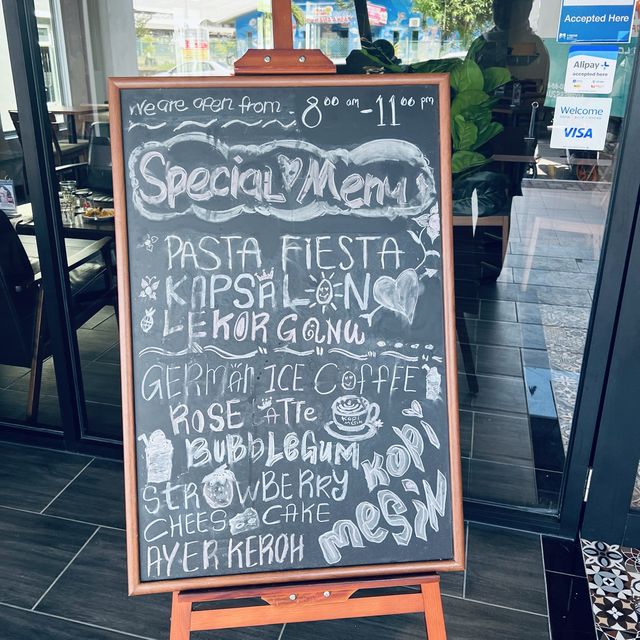 We are open from - 8 00 am - 11 00 pm
Special Menu
PASTA FIESTA
KAPSALON
LEKOR GANU
GERMAN ICE COFFEE
ROSE LATTE
KOPI MESIN
BUBBLEGUM
STRAWBERRY
CHEESE CAKE
AYER KEROH
KOPI
MESIN
Accepted Here
Alipay+
accepted here
Welcome
VISA